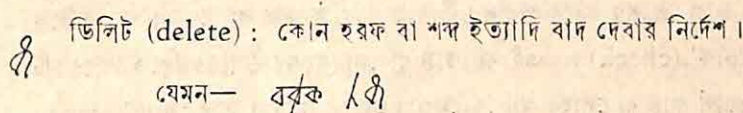 ডিলিট (delete) : কোন হরফ বা শব্দ ইত্যাদি বাদ দেবার নির্দেশ।
যেমন—